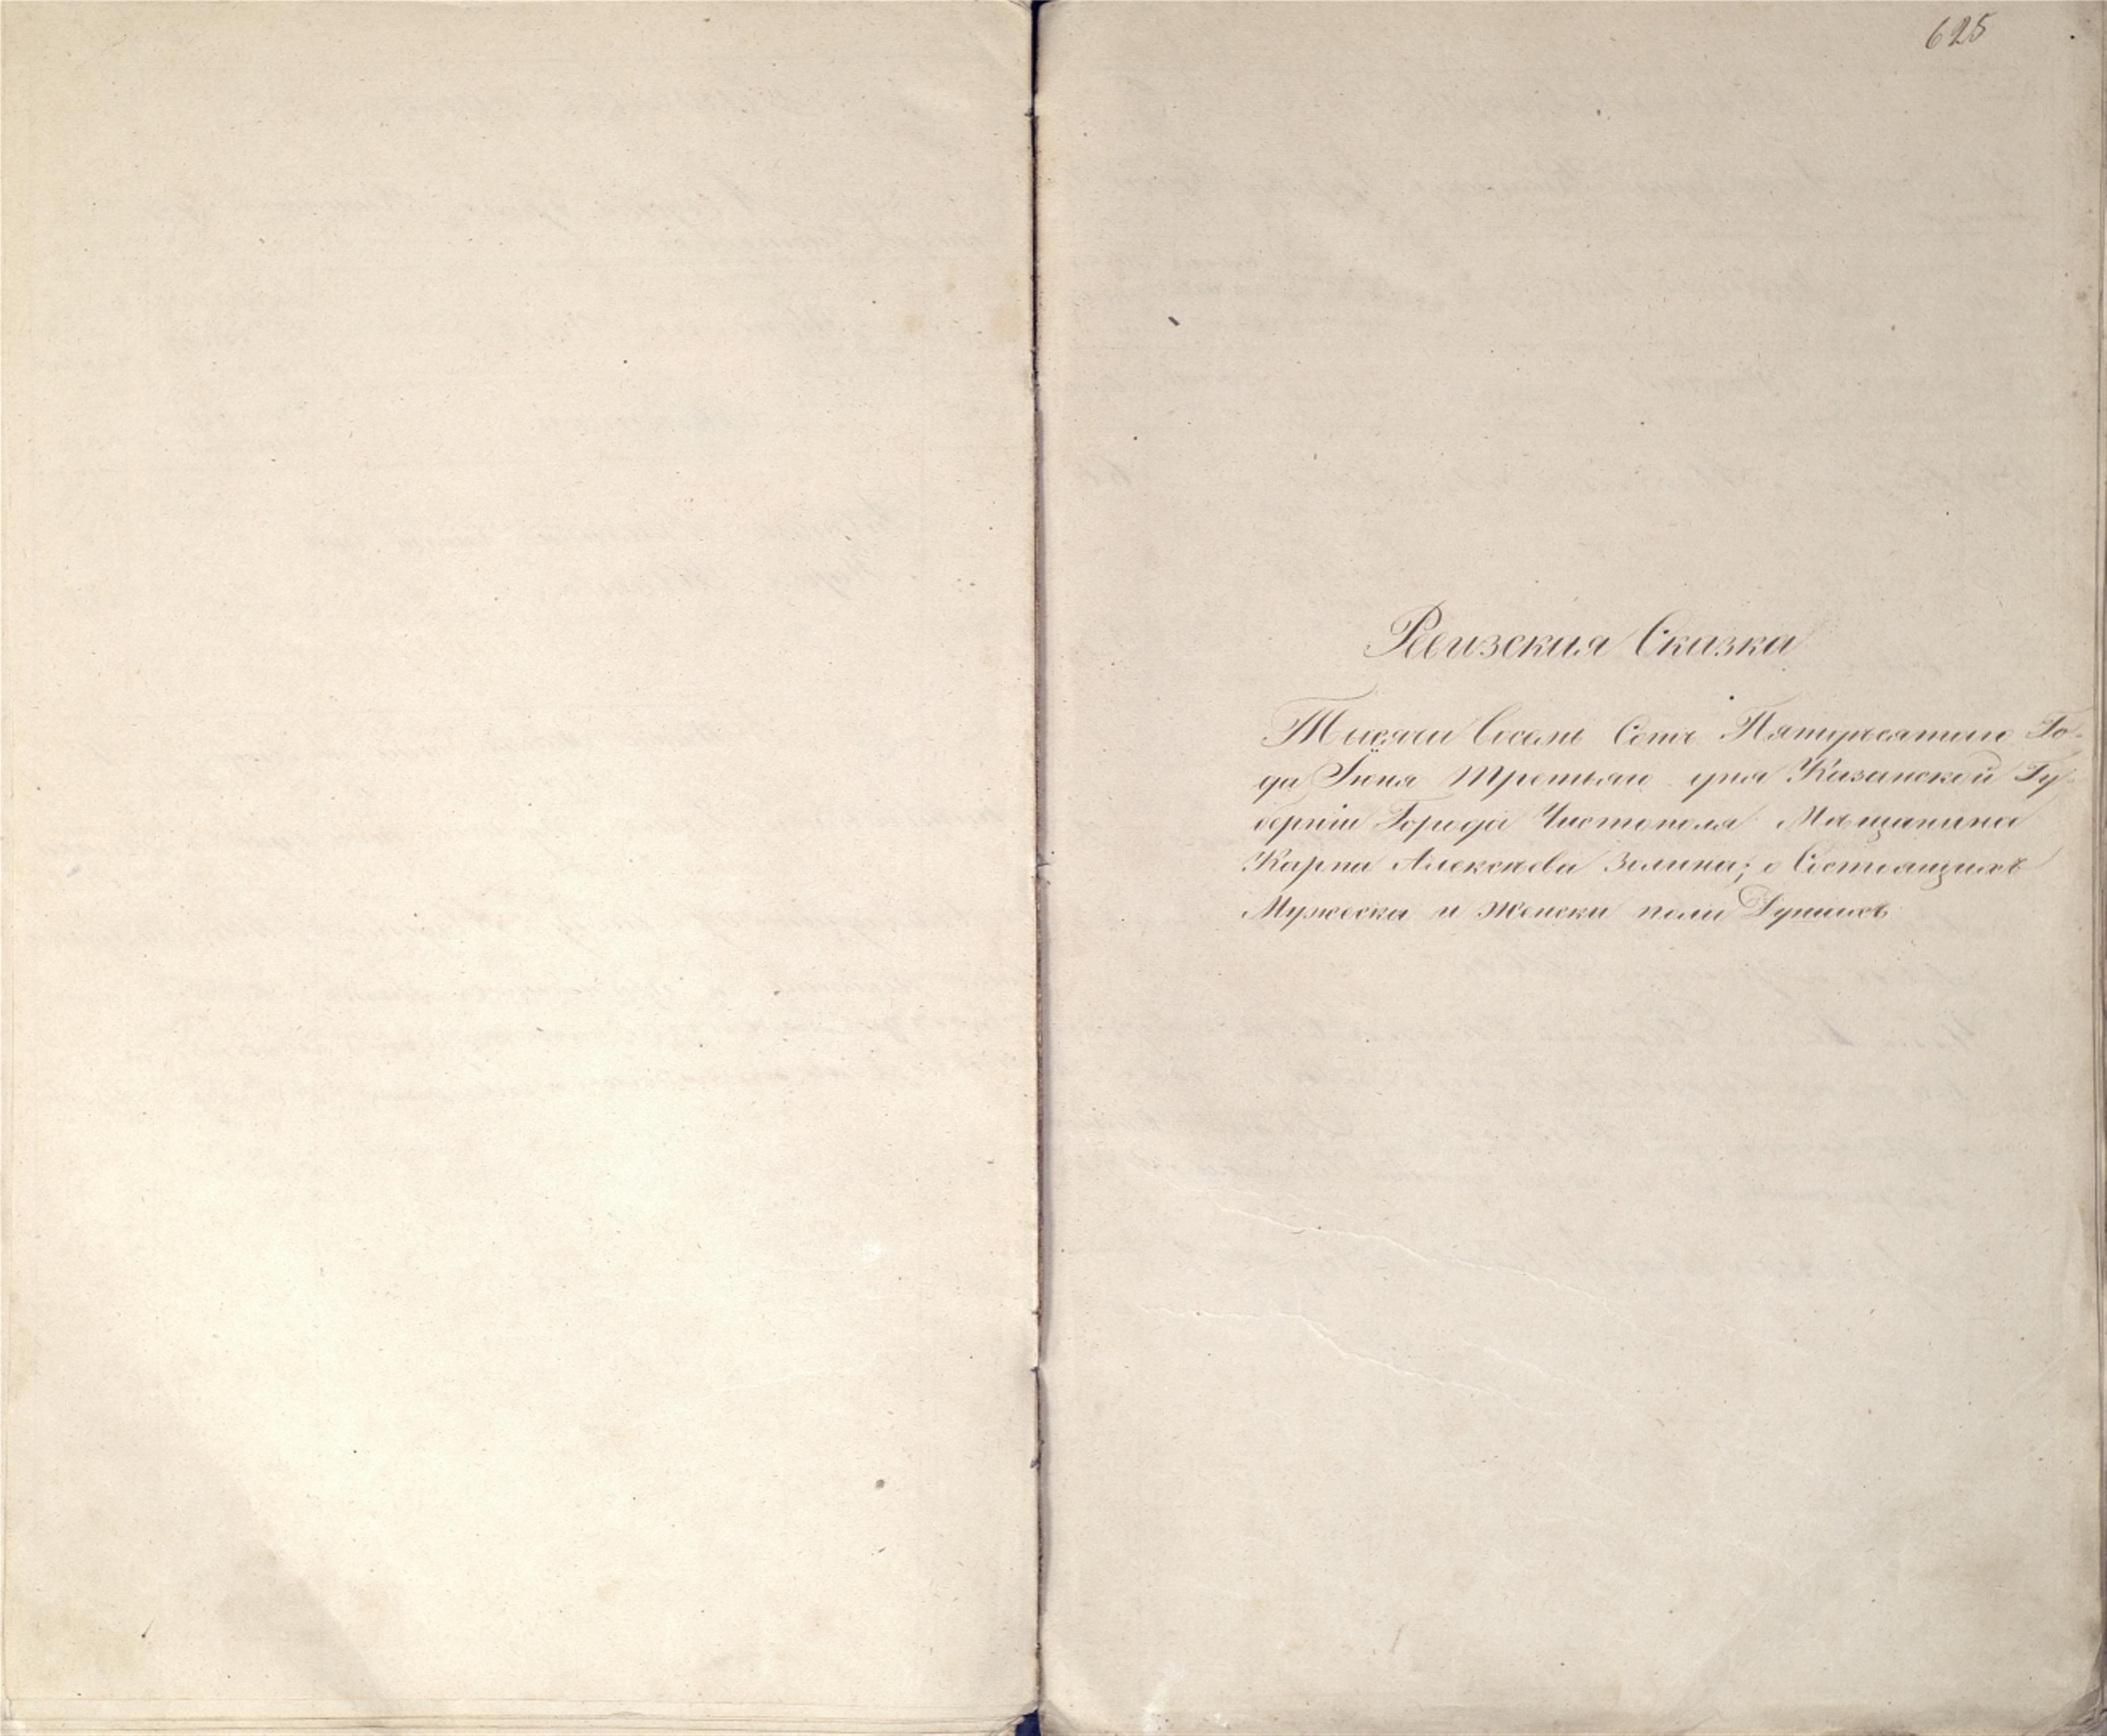 625
Ревизская Сказка
Тысяча Восемь Сотъ Пятидесятаго Го-
да Іюня Третьяго дня Казанской Гу-
берніи Города Чистополя Мѣщанина
Карпа Алексѣева Золина; о Состоящихъ
Мужеска и Женска пола Душахъ